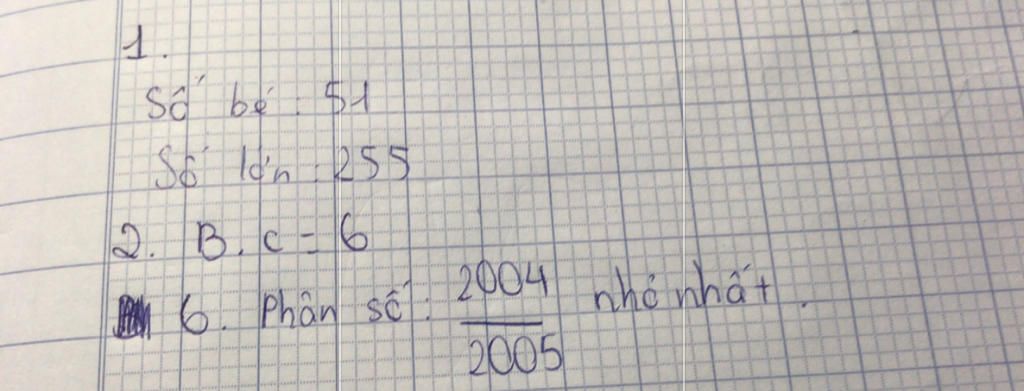 1.
Số bé: 51
Số lớn: 255
2. B. c = 6
6. Phân số: 2004/2005 nhỏ nhất.